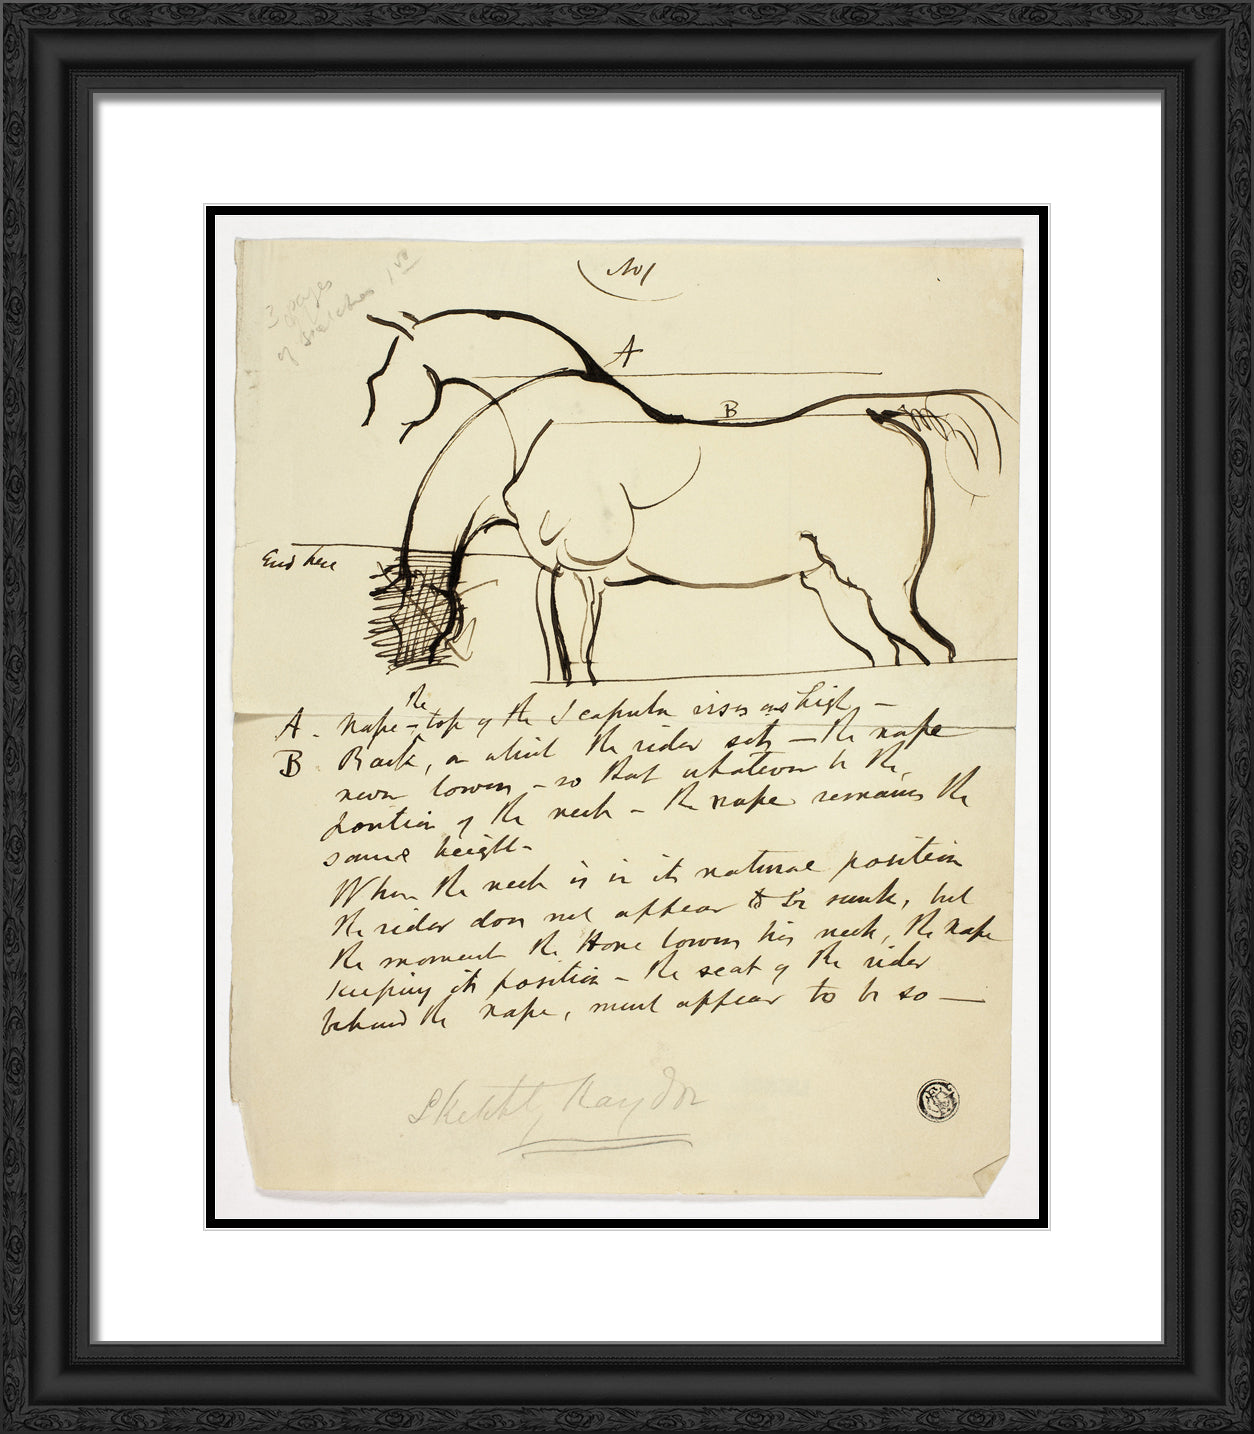 No 1
3 pages
of sketches
A
B
End here
the
A. Nape - top of the Scapula rises as high —
B Back, on which the rider sets — the nape
never lowers - so that whatever be the
position of the neck - the nape remains the
same height -
When the neck is in its natural position
the rider does not appear to be sunk, but
the moment the Horse lowers his neck, the nape
keeping its position - the seat of the rider
behind the nape, must appear to be so —
Sketch by Haydon